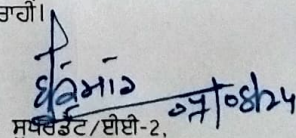 ਰਾਹੀਂ।
07/08/24
ਸੁਪਰਡੈਂਟ/ਈਈ-2,